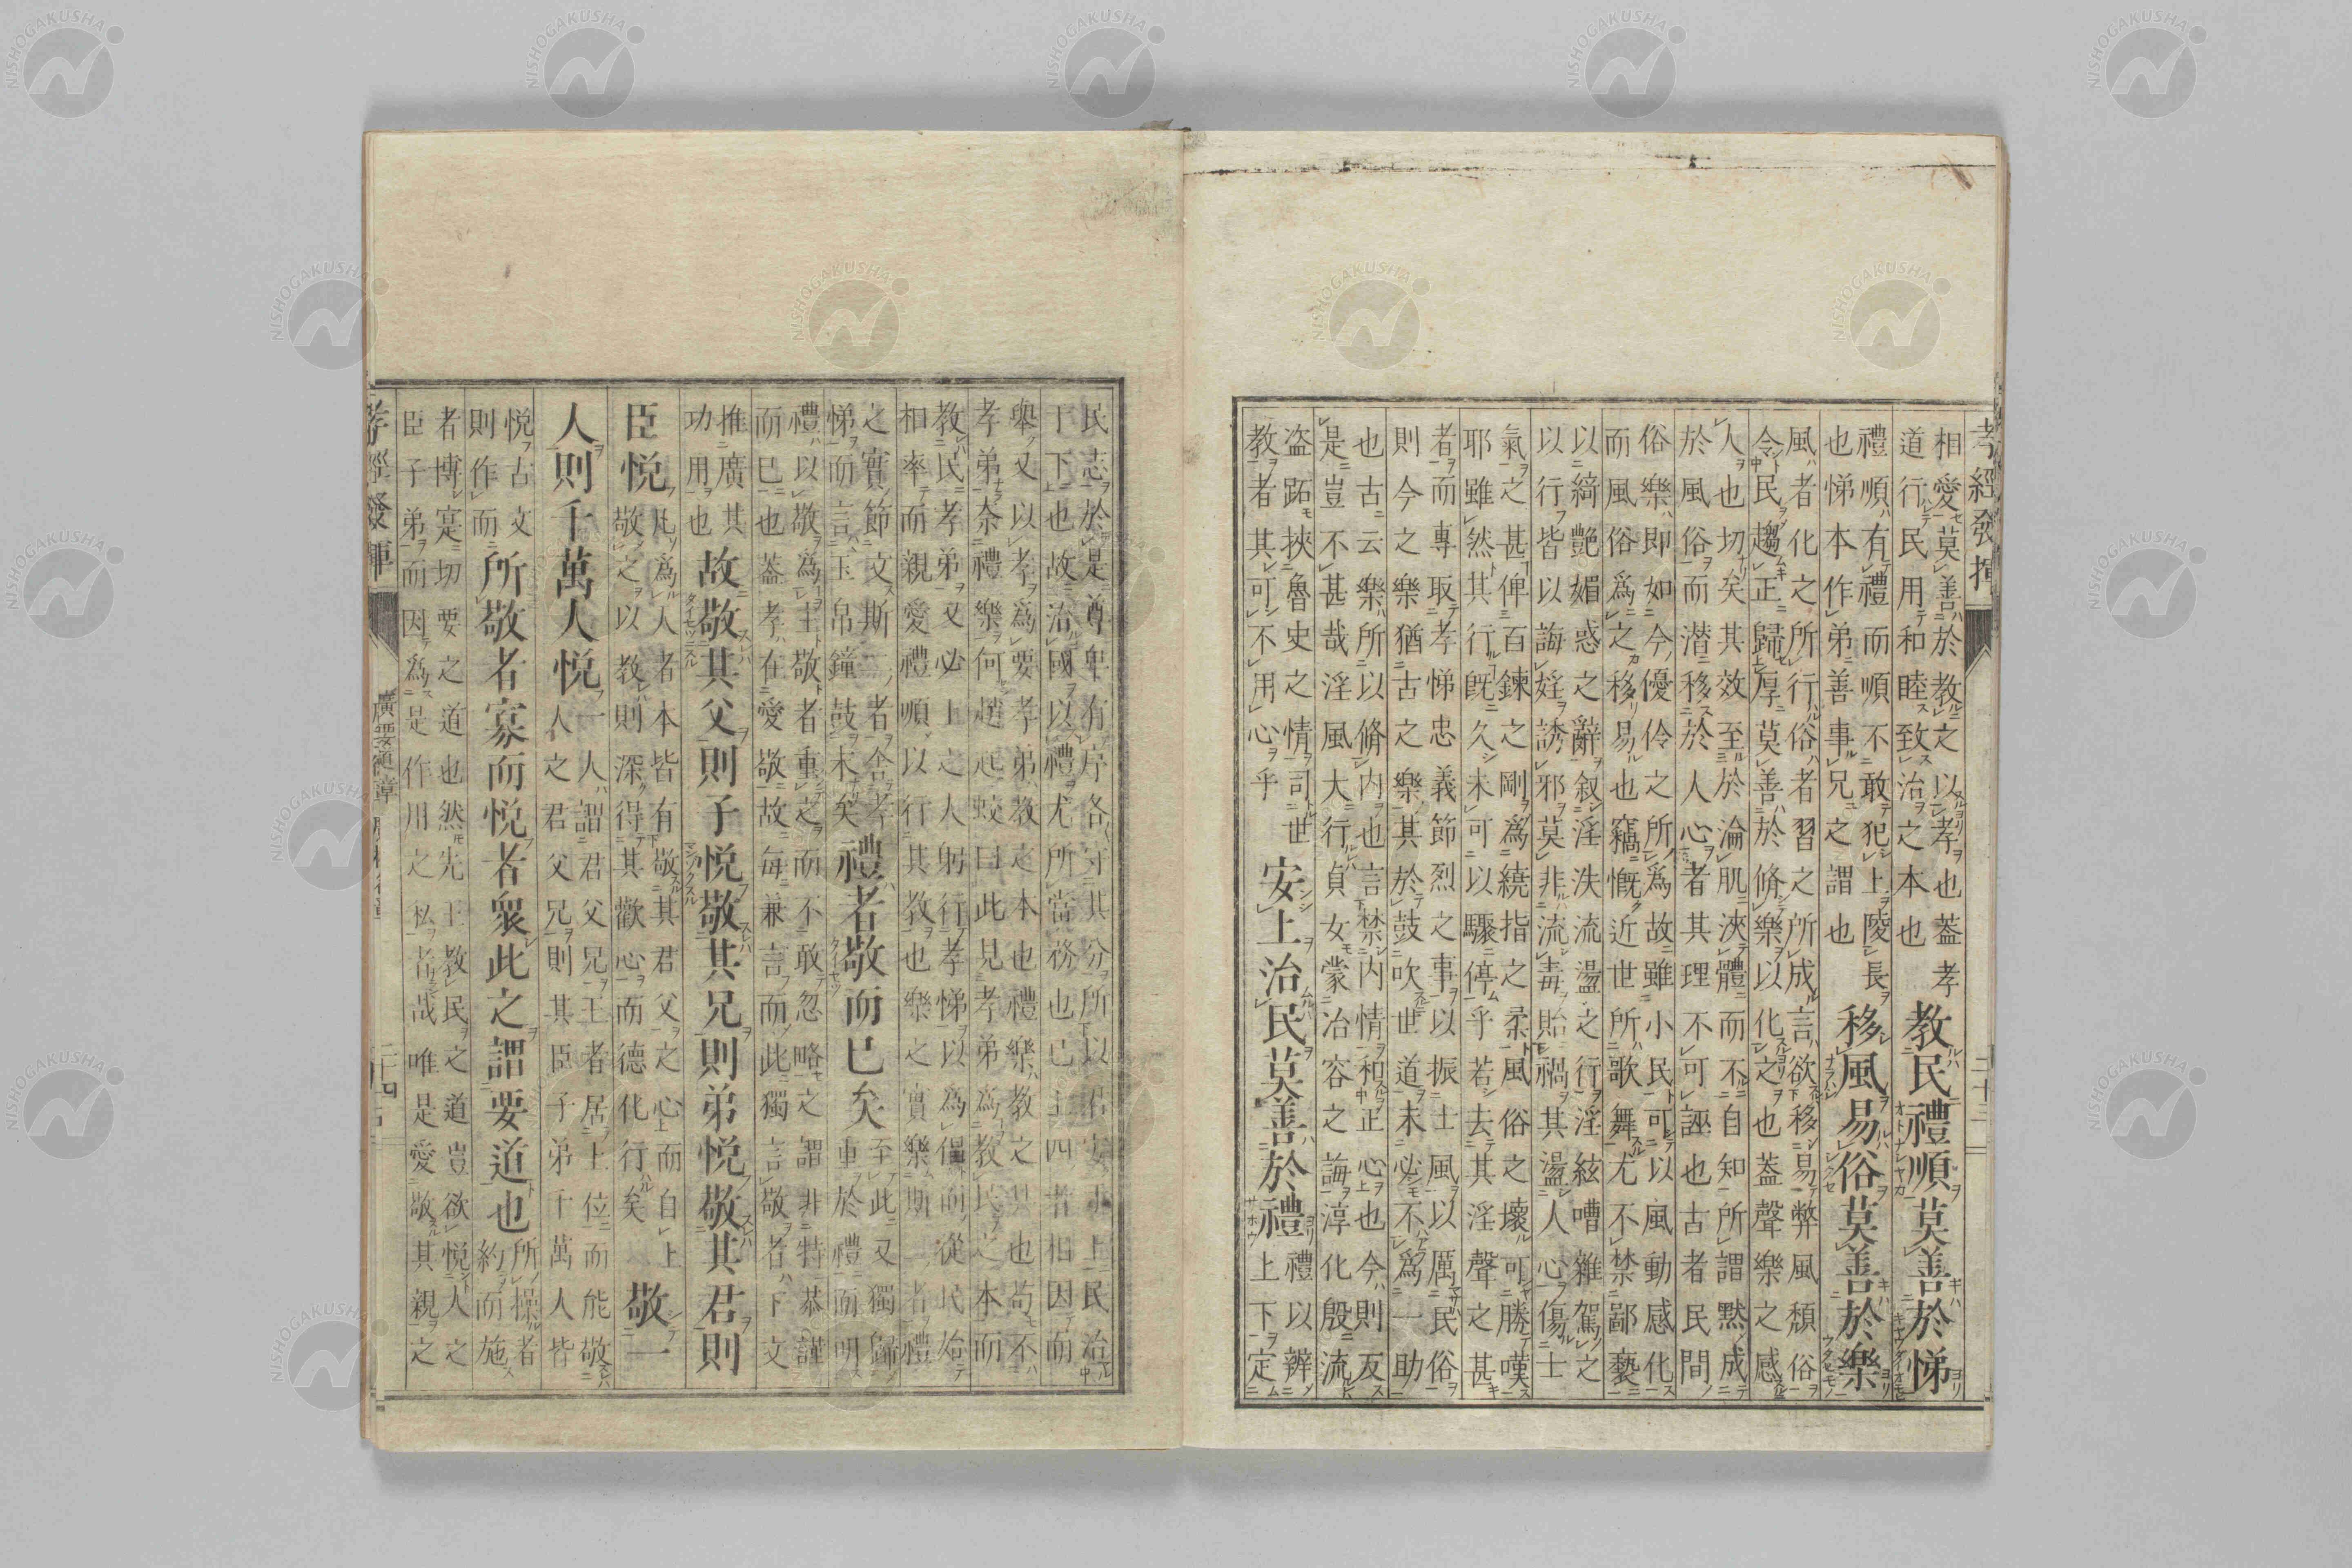 孝經發揮 二十三
相愛莫善於教之以孝也蓋孝
道行民用和睦致治之本也
教民禮順莫善於悌
禮順有禮而順不敢犯上陵長
也悌本作弟善事兄之謂也
移風易俗莫善於樂
風者化之所行俗者習之所成言欲移易弊風頹俗
令民趨正歸厚莫善於脩樂以化之也蓋聲樂之感
人也切矣其效至於淪肌浹體而不自知所謂黙成
於風俗而潜移於人心者其理不可誣也古者民間
俗樂即如今優伶之所爲故雖小民可以風動感化
而風俗爲之移易也竊慨近世所歌舞尤不禁鄙褻
以綺艶媚惑之辭叙淫泆流盪之行淫絃嘈雜駕之
以行皆以誨婬誘邪莫非流毒貽禍其盪人心傷士
氣之甚俾百鍊之剛爲繞指之柔風俗之壞可勝嘆
耶雖然其行既久未可以驟停乎若去其淫聲之甚
者而專取孝悌忠義節烈之事以振士風以厲民俗
則今之樂猶古之樂其於鼓吹世道未必不爲一助
也古云樂所以脩内也言禁内情和正心也今則反
是豈不甚哉淫風大行貞女蒙冶容之誨淳化殷流
盗跖挾魯史之情司世
教者其可不用心乎
安上治民莫善於禮
禮以辨
上下定
民志於是尊卑有序各守其分所以君安于上民治
于下也故治國以禮尤所當務也已上四者相因而
舉又以孝爲要孝弟教之本也禮樂教之具也苟不
孝弟奈禮樂何趙起蛟曰此見孝弟爲教民之本而
教民孝弟又必上之人躬行孝悌以爲倡而從民始
相率而親愛禮順以行其教也樂之實樂斯二者禮
之實節文斯二者舍孝
悌而言玉帛鐘鼓末矣
禮者敬而已矣
至此又獨歸
重於禮而明
禮以敬爲主敬者重之而不敢忽略之謂非特恭謹
而已也蓋孝在愛敬故毎兼言而此獨言敬者下文
推廣其
功用也
故敬其父則子悦敬其兄則弟悦敬其君則
臣悦
凡爲人者本皆有敬其君父之心而自上
敬之以教則深得其歡心而德化行矣
敬一
人則千萬人悦
一人謂君父兄王者居上位而能敬
人之君父兄則其臣子弟千萬人皆
悦古文
則作而
所敬者寡而悦者衆此之謂要道也
所操者
約而施
者博寔切要之道也然先王教民之道豈欲悦人之
臣子弟而因爲是作用之私者哉唯是愛敬其親之
孝經發揮 廣要道章 二十四